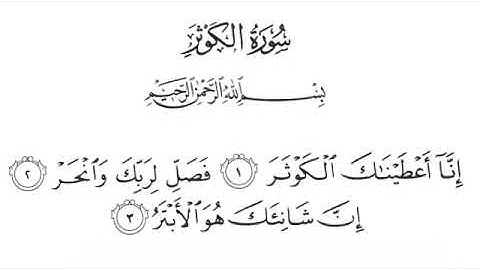 سُورَةُ الكَوْثَرِ
بِسْمِ اللَّهِ الرَّحْمَٰنِ الرَّحِيمِ
إِنَّآ أَعْطَيْنَٰكَ ٱلْكَوْثَرَ ١ فَصَلِّ لِرَبِّكَ وَٱنْحَرْ ٢
إِنَّ شَانِئَكَ هُوَ ٱلْأَبْتَرُ ٣